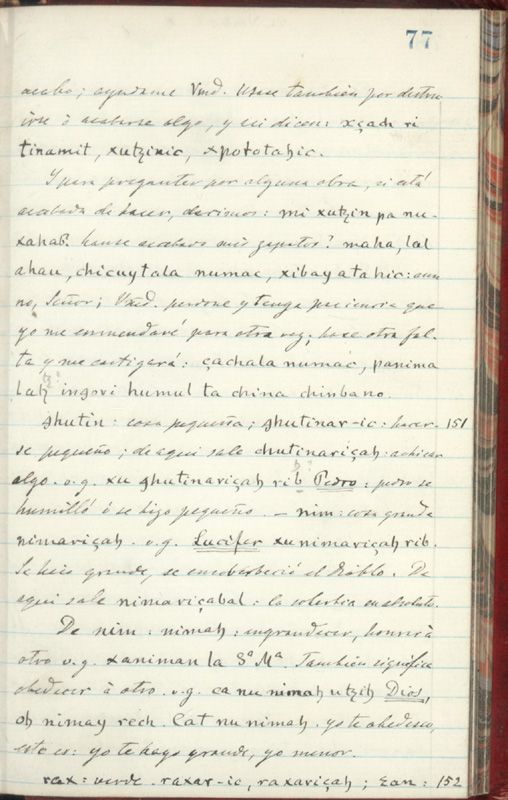 77
acabo; ayudame Vmd. Usase tambien por destru
irse ò acabarse algo, y asi dicen: xçach ri
tinamit, xutzinic, xpototahic.
Y para preguntar por alguna obra, si está
acabada de hacer, decimos: mi xutzin pa nu-
xahab. hanse acabado mis zapatos? maha, lal
ahau, chicuytala numac, xibayatahic: aun
no, Señor; Vmd. perdone y tenga paciencia que
yo me enmendaré para otra vez; hace otra fal-
ta y me castigará: çachala numac, panima
lah ingovi humul ta china chinbano.
ghutin: cosa pequeña; ghutinar-ic: hacer- 151
se pequeño; de aqui sale chutinariçah: achicar
algo. v.g. xu ghutinariçah rib Pedro: pedro se
humilló ó se hizo pequeño. — nim: cosa grande
nimariçah. v.g. Lucifer xu nimariçah rib.
Se hizo grande, se ensoberbeció el Diablo. De
aqui sale nimariçabal: la soberbia en absoluto.
De nim: nimah: engrandecer, honrrar à
otro v.g. xaniman la Sª Mª. Tambien significa
obedecer à otro. v.g. ca nu nimah utzih Dios,
oh nimay rech. Cat nu nimah. yo te obedesco,
esto es: yo te hago grande, yo menor.
rax: verde. raxar-ic, raxariçah; ean: 152